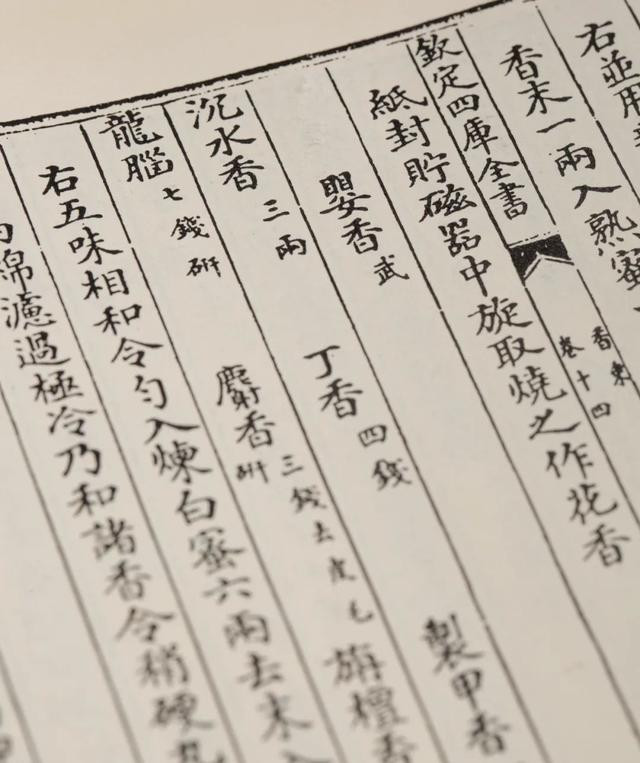 右並用
香末一兩入熟蜜
欽定四庫全書
香乘
卷十四
紙封貯磁器中旋取燒之作花香
嬰香武
沉水香三兩 丁香四錢 製甲香
龍腦七錢研 麝香三錢去皮毛研 旃檀香
右五味相和令勻入煉白蜜六兩去末入
綿濾過極冷乃和諸香令稍硬丸